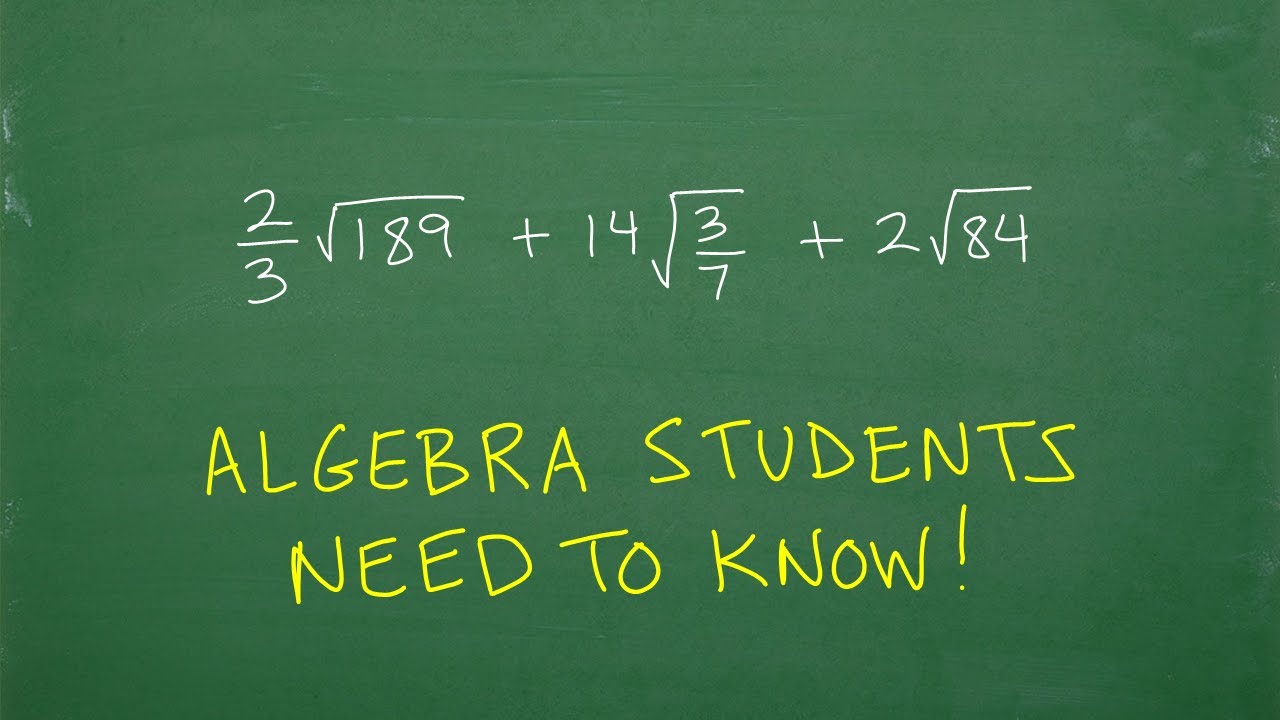 2/3 √189 + 14 √3/7 + 2 √84
ALGEBRA STUDENTS
NEED TO KNOW!